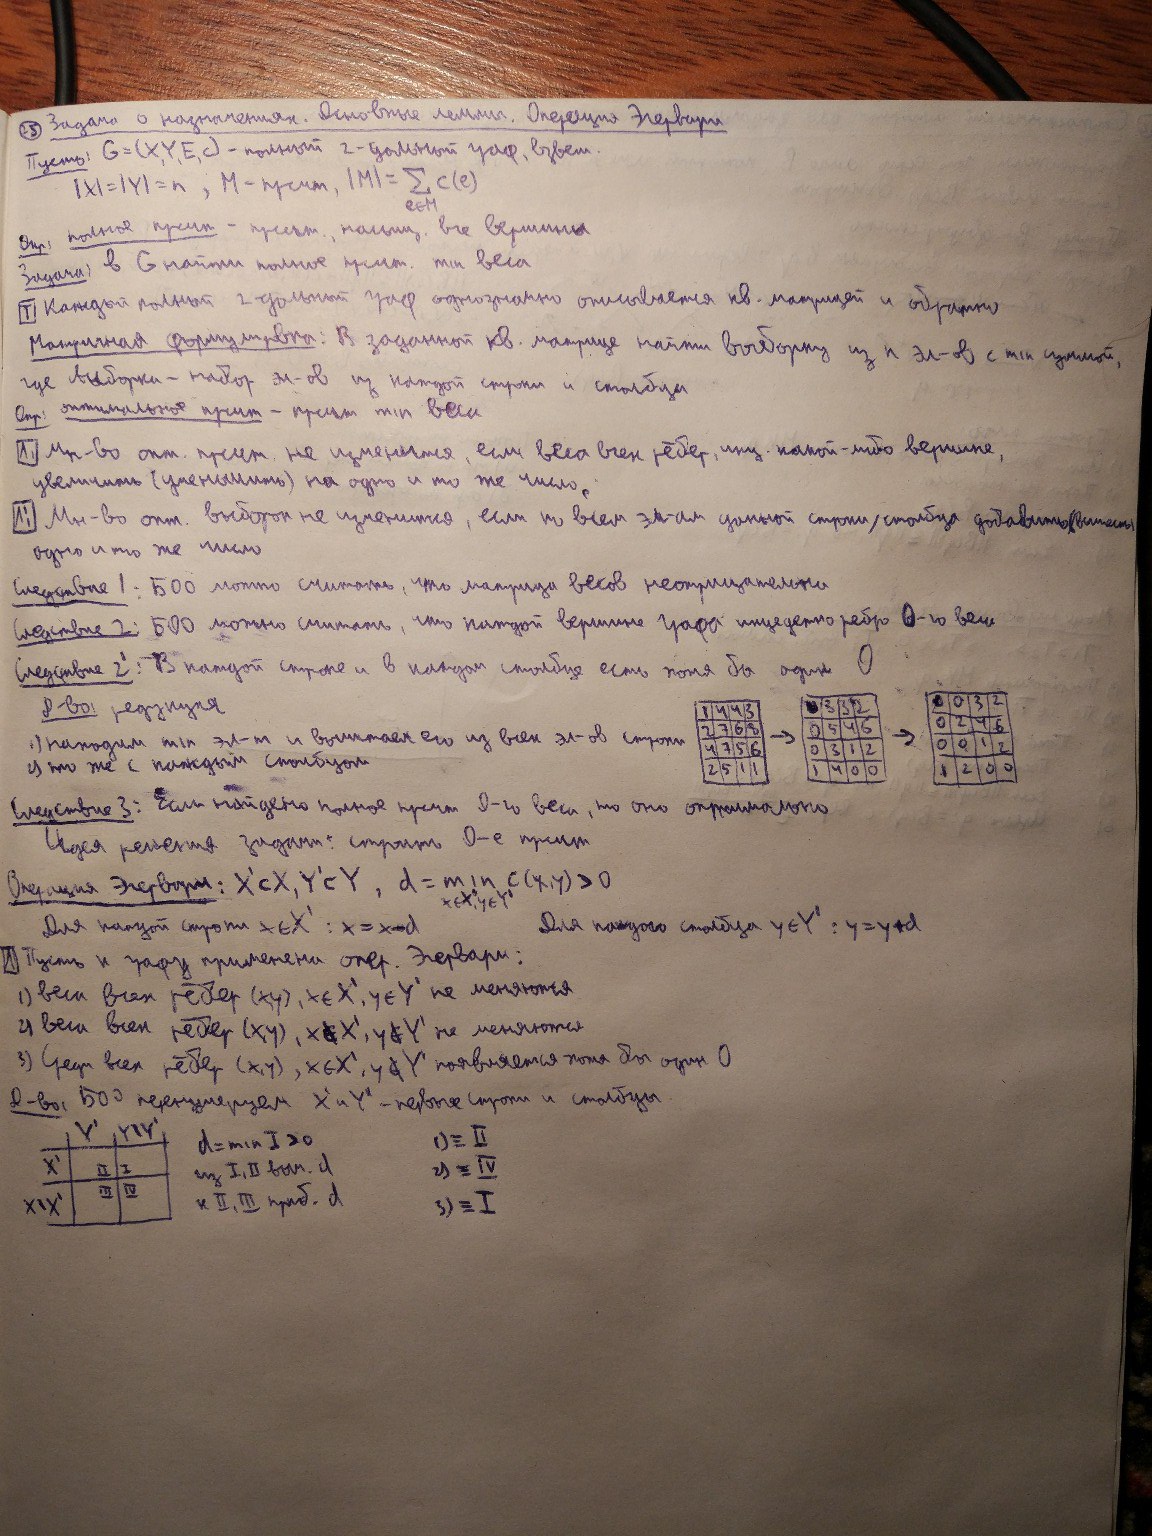 25 Задача о назначениях. Основные леммы. Операция Эгервари
Пусть: G=(X,Y,E,c) - полный 2-дольный граф, взвеш.
|X|=|Y|=n, M - прсчт, |M|= ∑ c(e)
e∈M
Опр: полное прсчт - прсчт., насыщ. все вершины
Задача: в G найти полное прсчт. min веса
Т Каждый полный 2-дольный граф однозначно описывается кв. матрицей и обратно
Матричная формулировка: В заданной кв. матрице найти выборку из n эл-ов с min суммой,
где выборка - набор эл-ов из каждой строки и столбца
Опр: оптимальное прсчт - прсчт min веса
Л1 Мн-во опт. прсчт. не изменится, если веса всех рёбер, инц. какой-либо вершине,
увеличить (уменьшить) на одно и то же число.
Л1' Мн-во опт. выборок не изменится, если ко всем эл-ам данной строки/столбца добавить (вычесть)
одно и то же число
Следствие 1: БОО можно считать, что матрица весов неотрицательна
Следствие 2: БОО можно считать, что каждой вершине графа инцедентно ребро 0-го веса
Следствие 2': В каждой строке и в каждом столбце есть хотя бы один 0
Д-во: редукция
1) находим min эл-т и вычитаем его из всех эл-ов строки
2) то же с каждым столбцом
1 4 4 3 → 0 3 3 2 → 0 0 3 2
2 7 6 8 0 5 4 6 0 2 4 6
4 7 5 6 0 3 1 2 0 0 1 2
2 5 1 1 1 4 0 0 1 2 0 0
Следствие 3: Если найдено полное прсчт 0-го веса, то оно оптимально
Идея решения задачи: строить 0-е прсчт
Операция Эгервари: X'⊂X, Y'⊂Y, d = min c(x,y) > 0
x∈X', y∉Y'
Для каждой строки x∈X' : x=x-d Для каждого столбца y∈Y' : y=y+d
Л Пусть к графу применена опер. Эгервари:
1) веса всех рёбер (x,y), x∈X', y∈Y' не меняются
2) веса всех рёбер (x,y), x∉X', y∉Y' не меняются
3) Среди всех рёбер (x,y), x∈X', y∉Y' появляется хотя бы один 0
Д-во: БОО перенумеруем X' и Y' - первые строки и столбцы.
Y' Y\Y'
X' II I
X\X' III IV
d=min I >0
из I, II выч. d
к II, III приб. d
1) ≡ II
2) ≡ IV
3) ≡ I